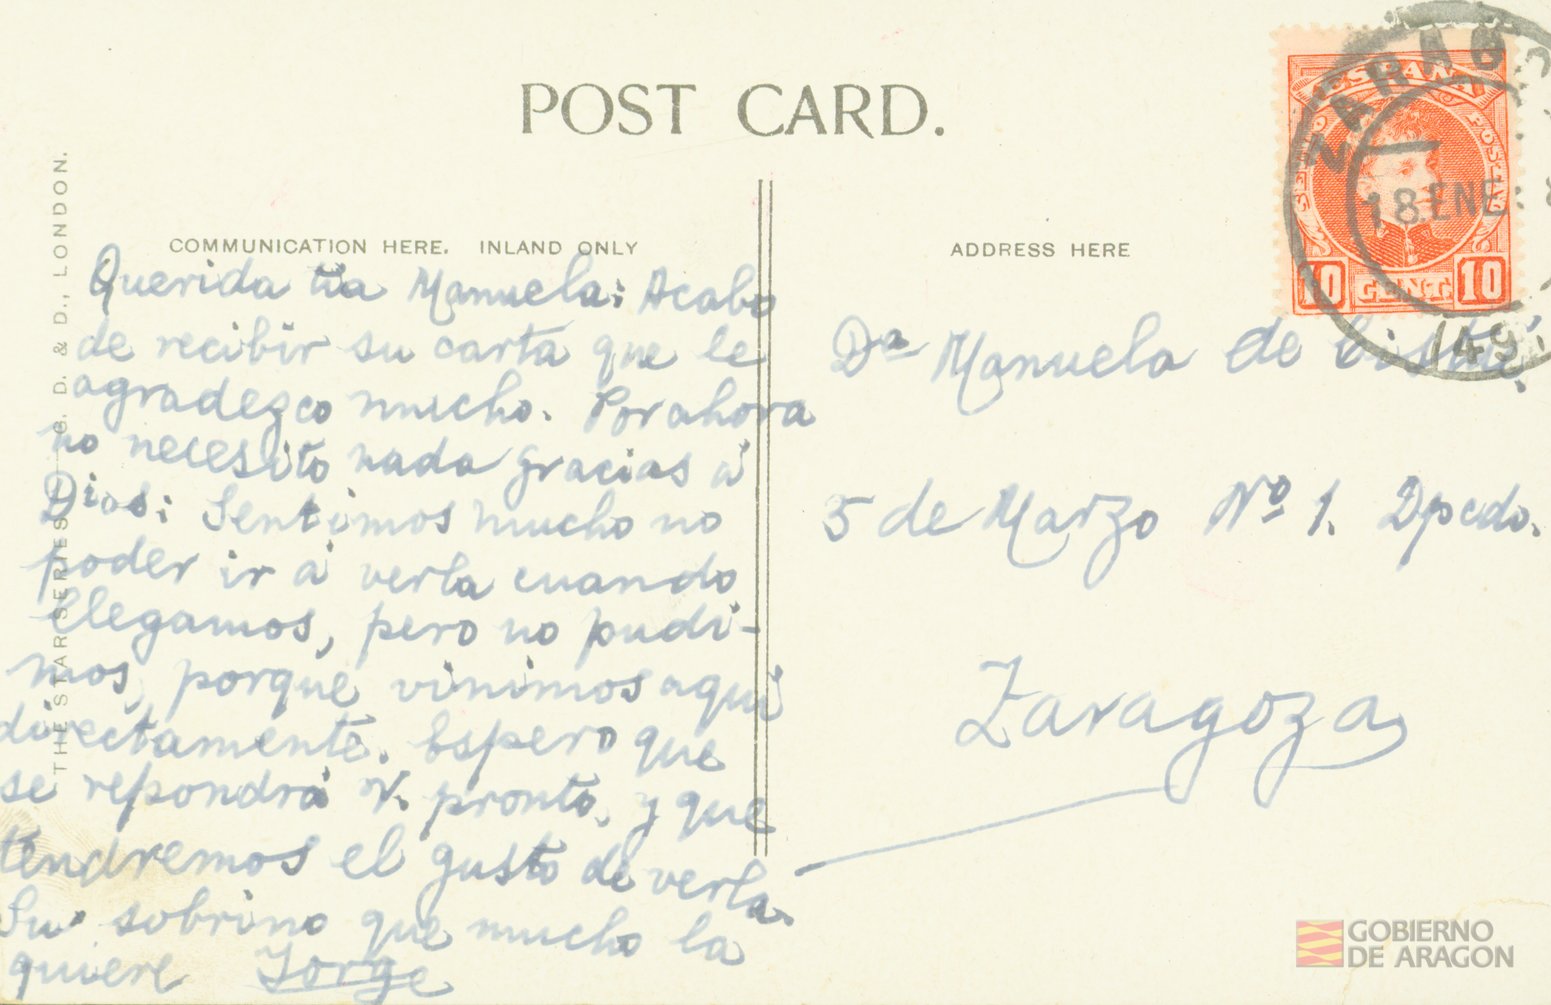 POST CARD.
COMMUNICATION HERE. INLAND ONLY
ADDRESS HERE
THE STAR SERIES G. D. & D., LONDON.
Querida tia Manuela: Acabo
de recibir su carta que le
agradezco mucho. Por ahora
no necesito nada gracias á
Dios: Sentimos mucho no
poder ir á verla cuando
llegamos, pero no pudi-
mos, porque vinimos aqui
directamente. Espero que
se repondrá V. pronto, y que
tendremos el gusto de verla.
Su sobrino que mucho la
quiere Jorge
Da Manuela de
5 de Marzo Nº 1. Dpcdo.
Zaragoza
ESPAÑA
10 CENT. 10
ZARAGO
18 ENE
(49)
GOBIERNO
DE ARAGON